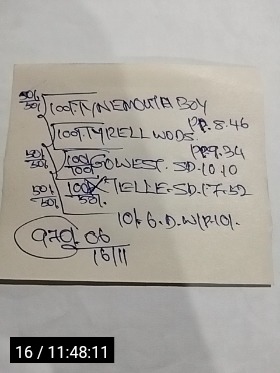 50/. 100/ TYNEMOUTH BOY
50/.
100/ TYRELL WODS. PP. 8.46
50/. 100/ GOWEST. SD. 10.10 PP 9.34
50/. 100/
50/. 100/ ELLE. SD. 17.52
50/. 50/.
10/. 6. D. W/P. 10/.
979.06
16/11
16 / 11:48:11